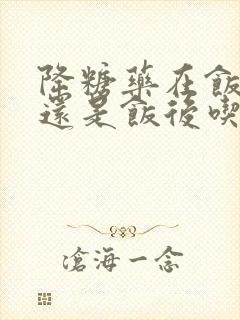 降糖藥在飯
還是飯後喫
滄海一念